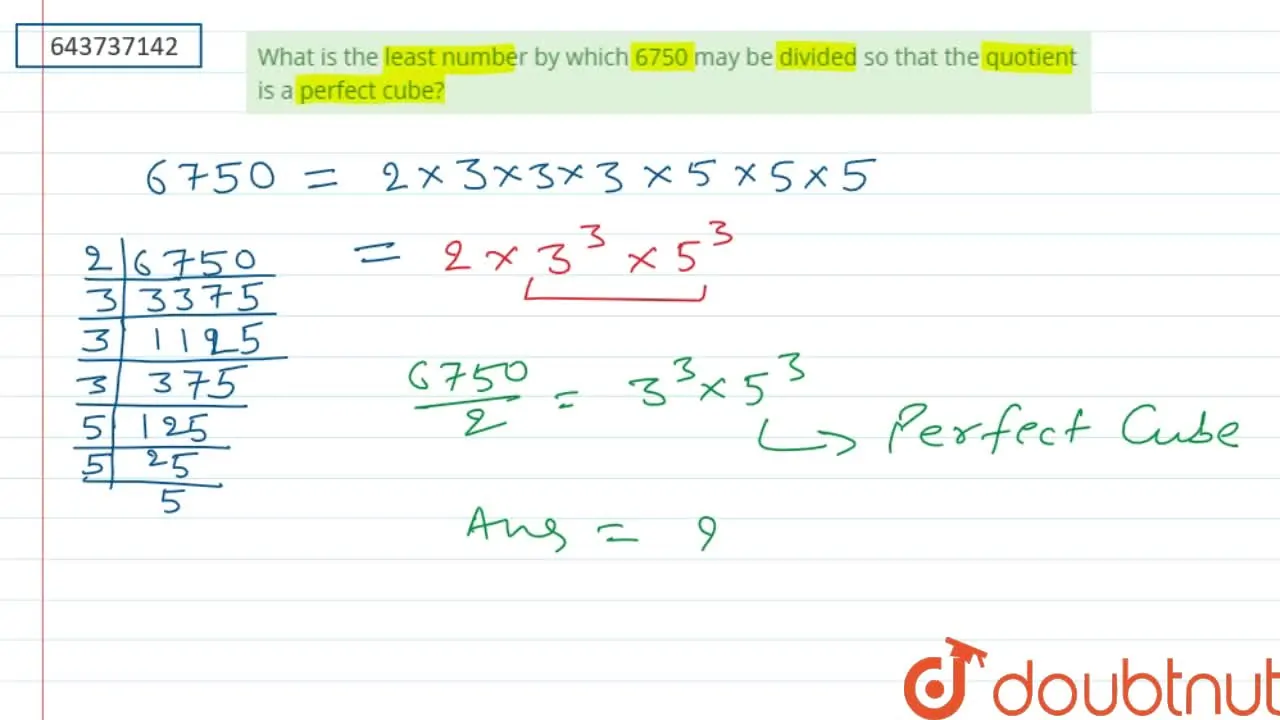 643737142
What is the least number by which 6750 may be divided so that the quotient
is a perfect cube?
6750 = 2 × 3 × 3 × 3 × 5 × 5 × 5
= 2 × 3³ × 5³
2 | 6750
3 | 3375
3 | 1125
3 | 375
5 | 125
5 | 25
5
6750/2 = 3³ × 5³
↳ Perfect Cube
Ans = 2
doubtnut